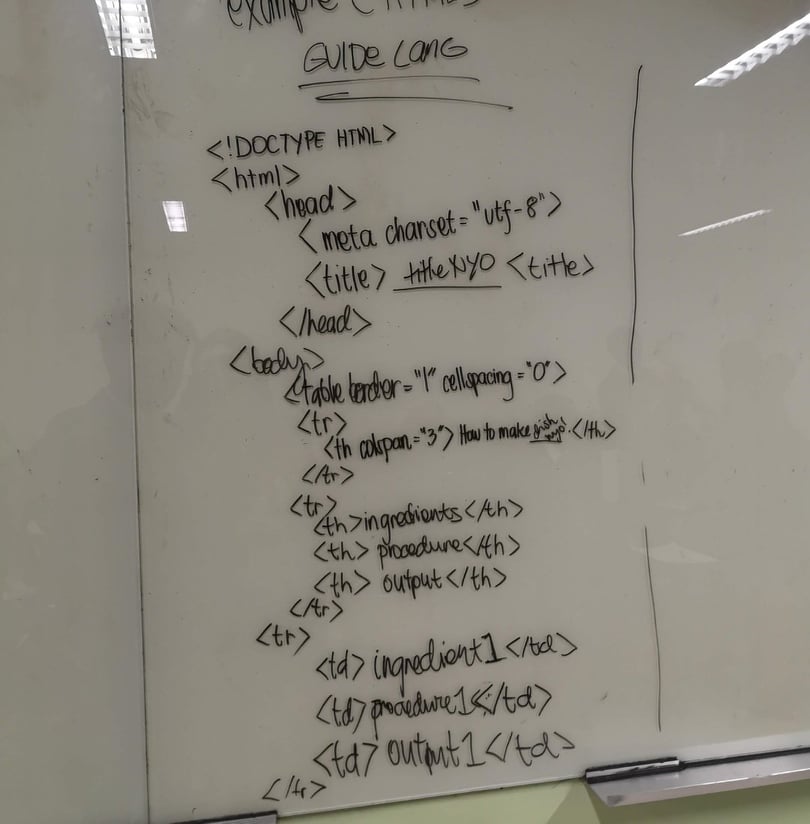 example (HTML)
GUIDE LANG
<!DOCTYPE HTML>
<html>
<head>
<meta charset="utf-8">
<title> title NYO <title>
</head>
<body>
<table border="1" cellspacing="0">
<tr>
<th colspan="3"> How to make dish nyo! </th>
</tr>
<tr>
<th>ingredients</th>
<th> procedure</th>
<th> output</th>
</tr>
<tr>
<td> ingredient1</td>
<td>procedure1</td>
<td> output1</td>
</tr>